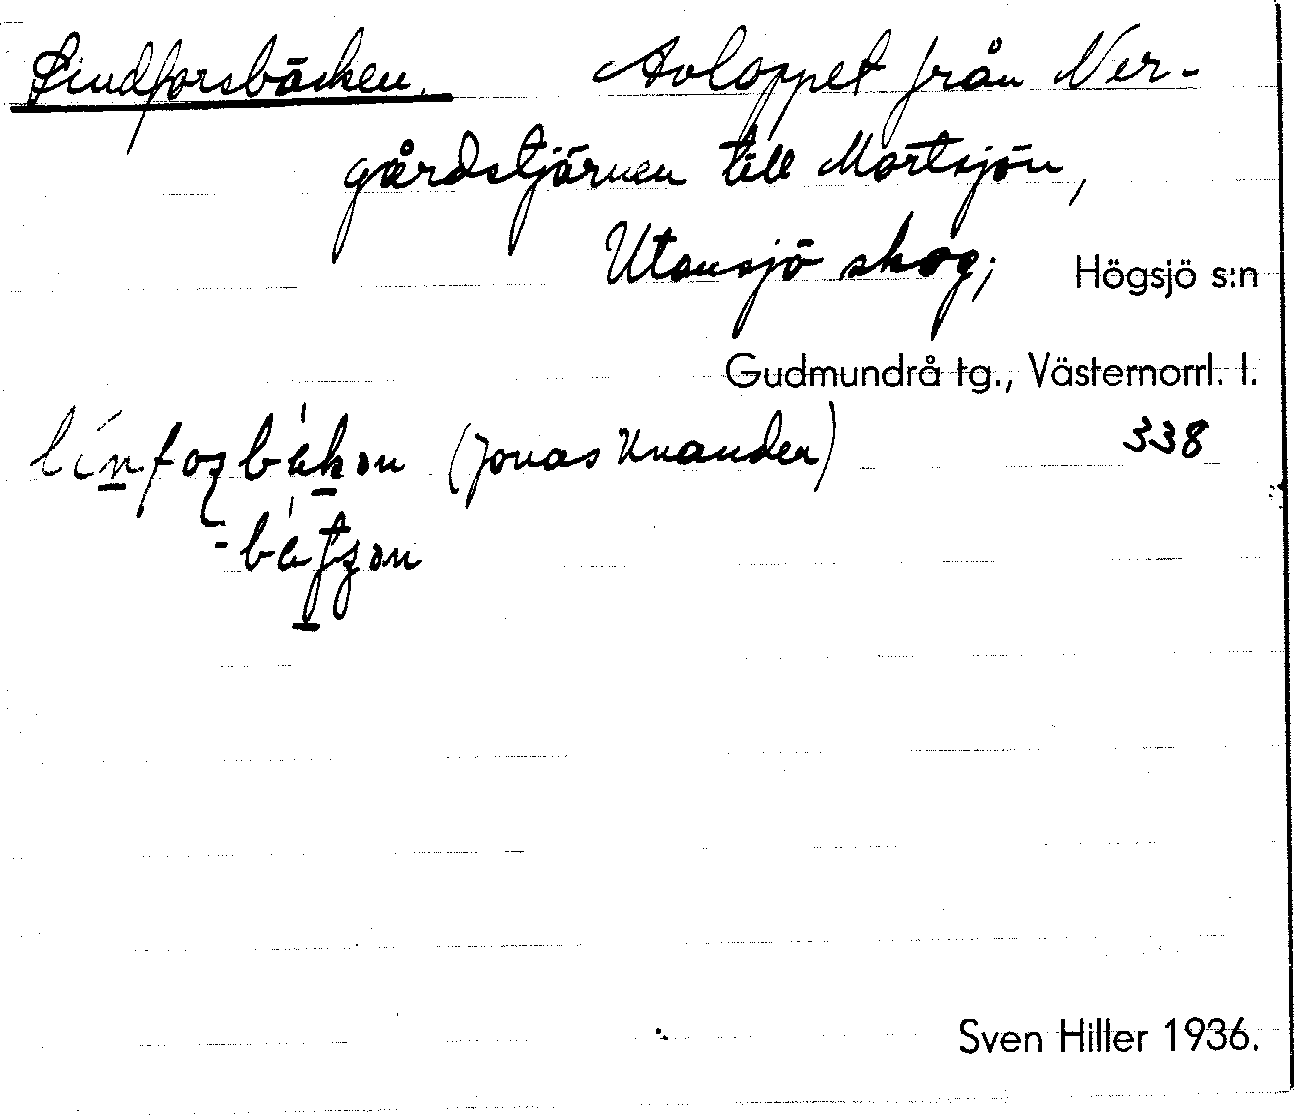 Lindforsbäcken. Avloppet från Ner-
gårdstjärnen till Mörtsjön,
Utansjö skog; Högsjö s:n
Gudmundrå tg., Västernorrl. l.
(Jonas Unander) 338
Sven Hiller 1936.